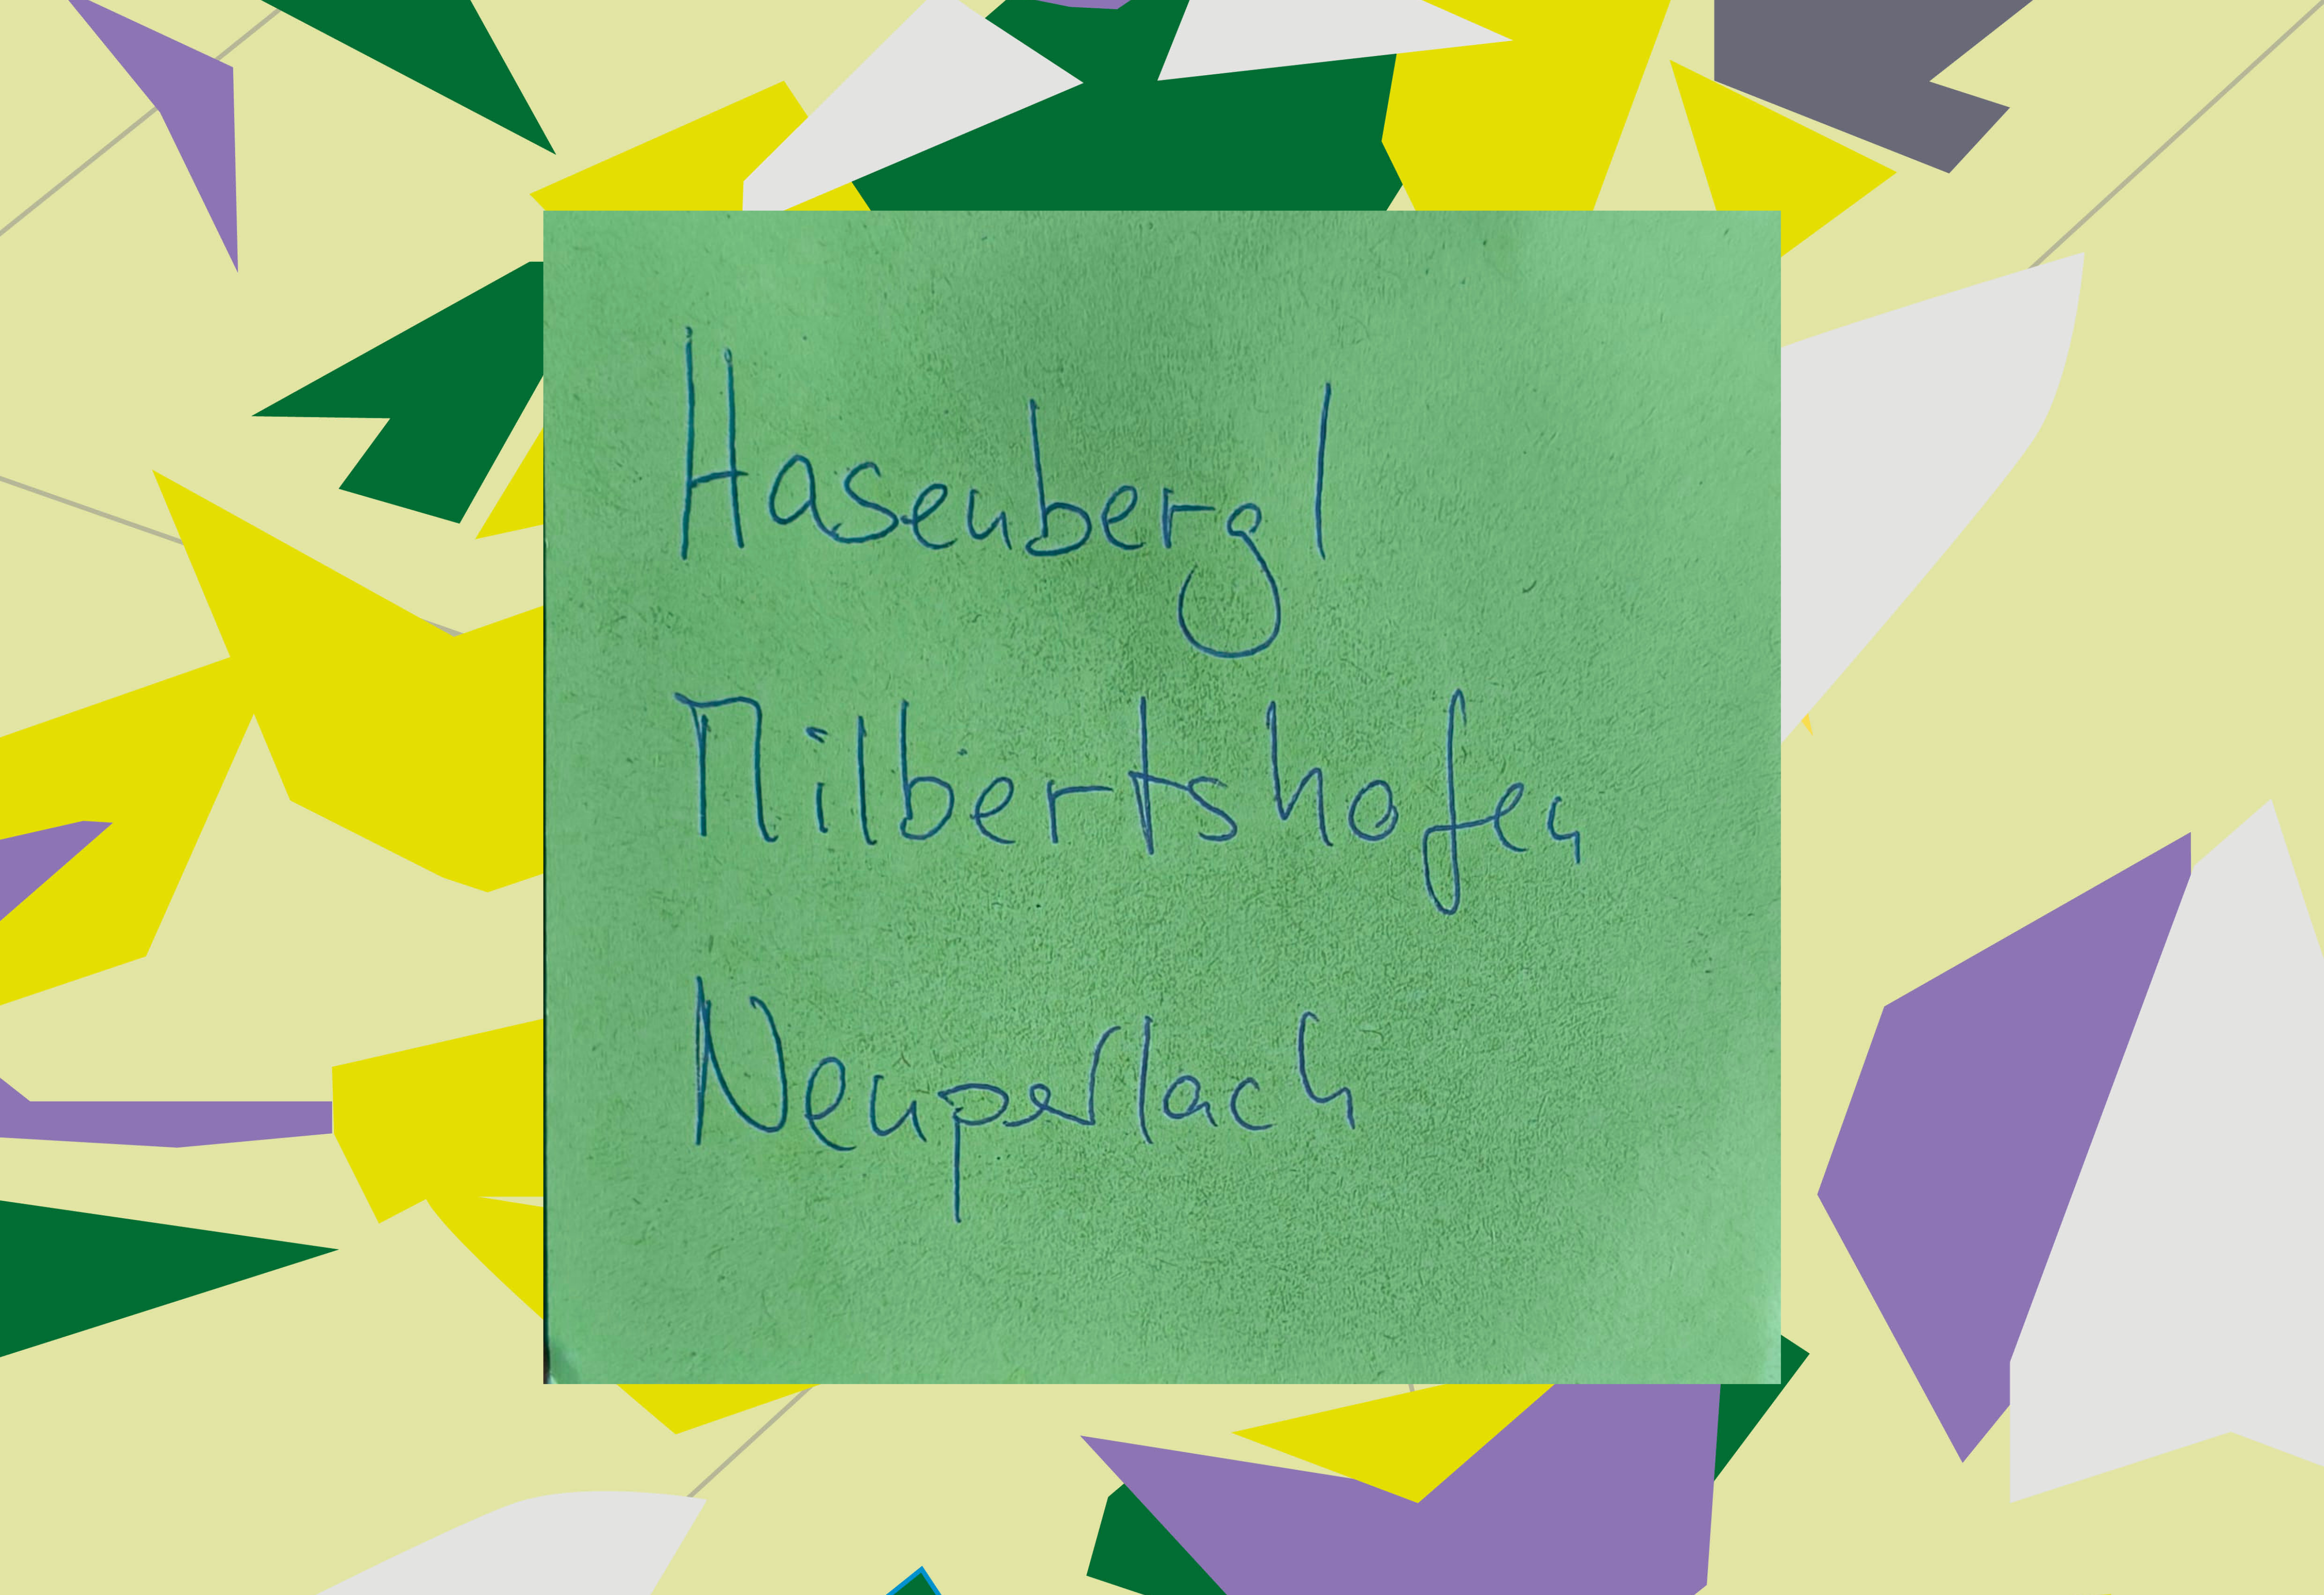 Hasenbergl
Milbertshofen
Neuperlach